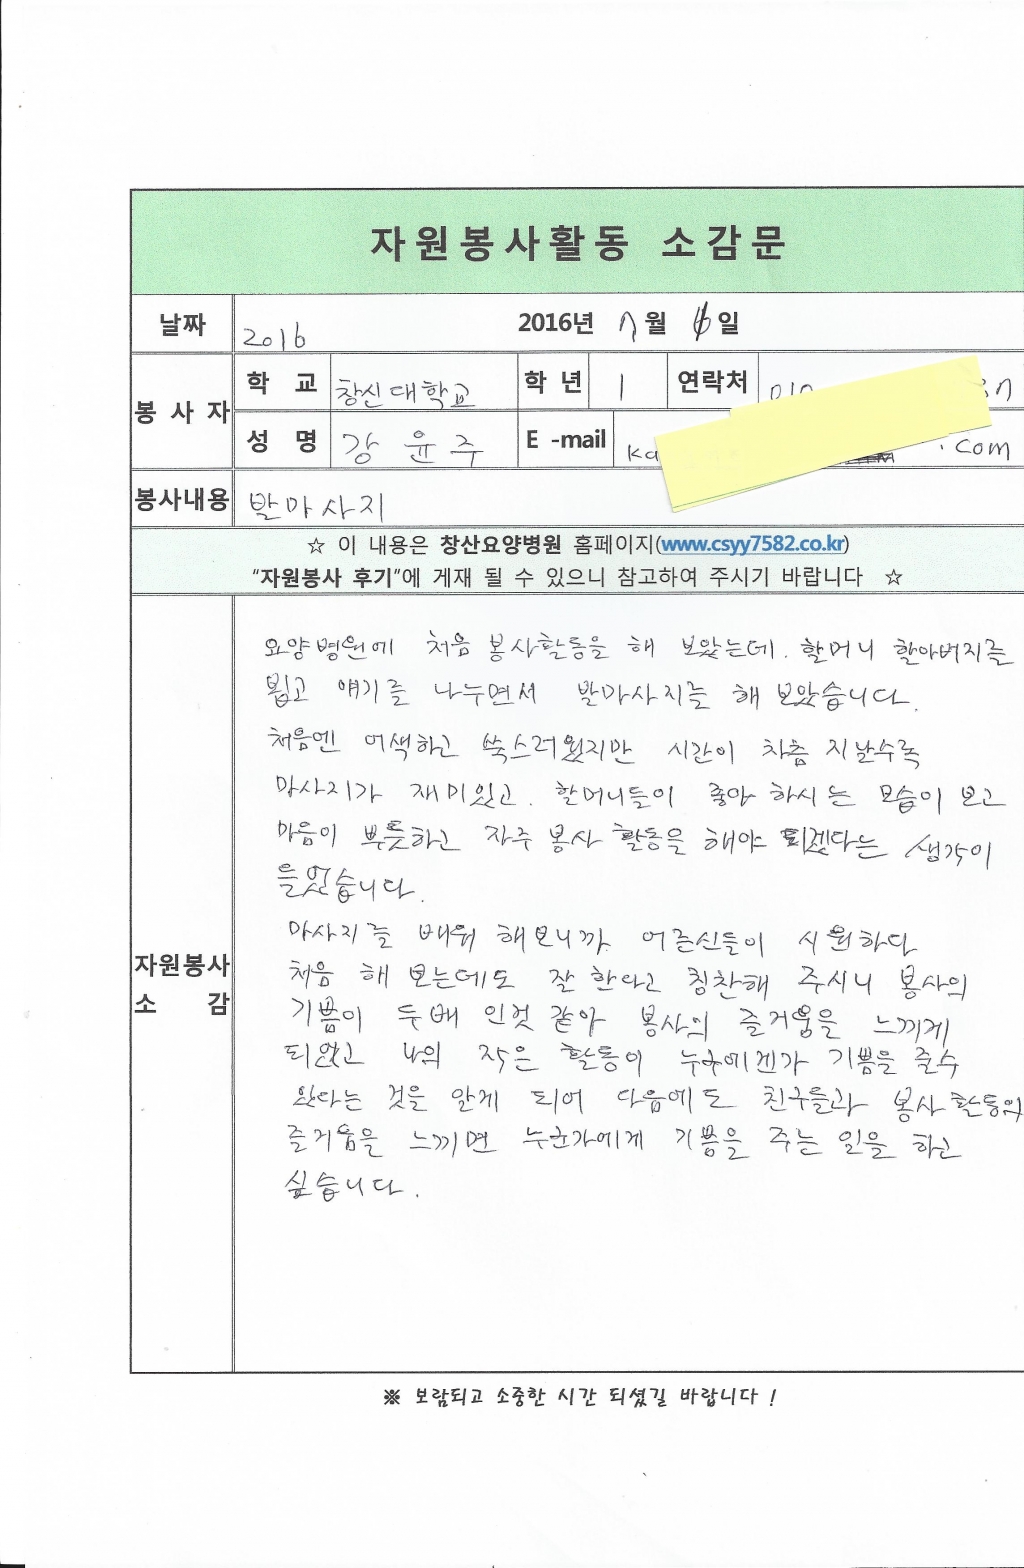 자원봉사활동 소감문
날짜 2016 2016년 7월 6일
봉사자 학 교 창신대학교 학 년 1 연락처 010
성 명 강윤주 E -mail ka .com
봉사내용 발마사지
☆ 이 내용은 창산요양병원 홈페이지(www.csyy7582.co.kr)
"자원봉사 후기"에 게재 될 수 있으니 참고하여 주시기 바랍니다 ☆
자원봉사 소 감
요양병원에 처음 봉사활동을 해 보았는데. 할머니 할아버지를
뵙고 얘기를 나누면서 발마사지를 해 보았습니다.
처음엔 어색하고 쑥스러웠지만 시간이 차츰 지날수록
마사지가 재미있고. 할머니들이 좋아 하시는 모습이 보고
마음이 뿌듯하고 자주 봉사 활동을 해야 되겠다는 생각이
들었습니다.
마사지를 배워 해보니까 어르신들이 시원하다
처음 해 보는데도 잘 한다고 칭찬해 주시니 봉사의
기쁨이 두배 인것 같아 봉사의 즐거움을 느끼게
되었고 나의 작은 활동이 누군에겐가 기쁨을 줄수
있다는 것을 알게 되어 다음에도 친구들과 봉사 활동의
즐거움을 느끼면 누군가에게 기쁨을 주는 일을 하고
싶습니다.
※ 보람되고 소중한 시간 되셨길 바랍니다 !